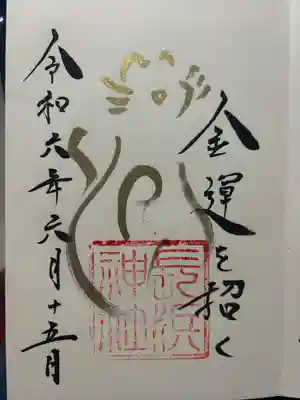 金運を招く
長浜
神社
令和六年六月十五日